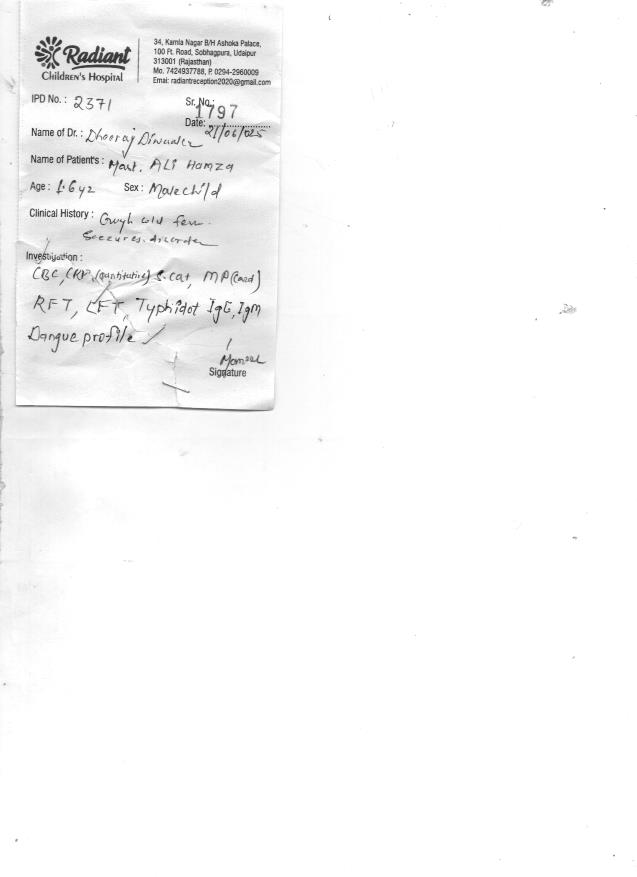 Radiant
Children's Hospital
34, Kamla Nagar B/H Ashoka Palace,
100 Ft. Road, Sobhagpura, Udaipur
313001 (Rajasthan)
Mo. 7424937788, P. 0294-2960009
Emai: radiantreception2020@gmail.com
IPD No. : 2371
Sr. No.: 1797
Date: 21/06/025
Name of Dr. : Dheeraj
Name of Patient's : Mast. ALi Hamza
Age : 1.6 yz Sex : Malechild
Clinical History : cold
disorder
Investigation :
CBC, (quantitative) S. cat, MP (Card)
RFT, LFT, Typhidot IgG, IgM
Dangue profile
Signature